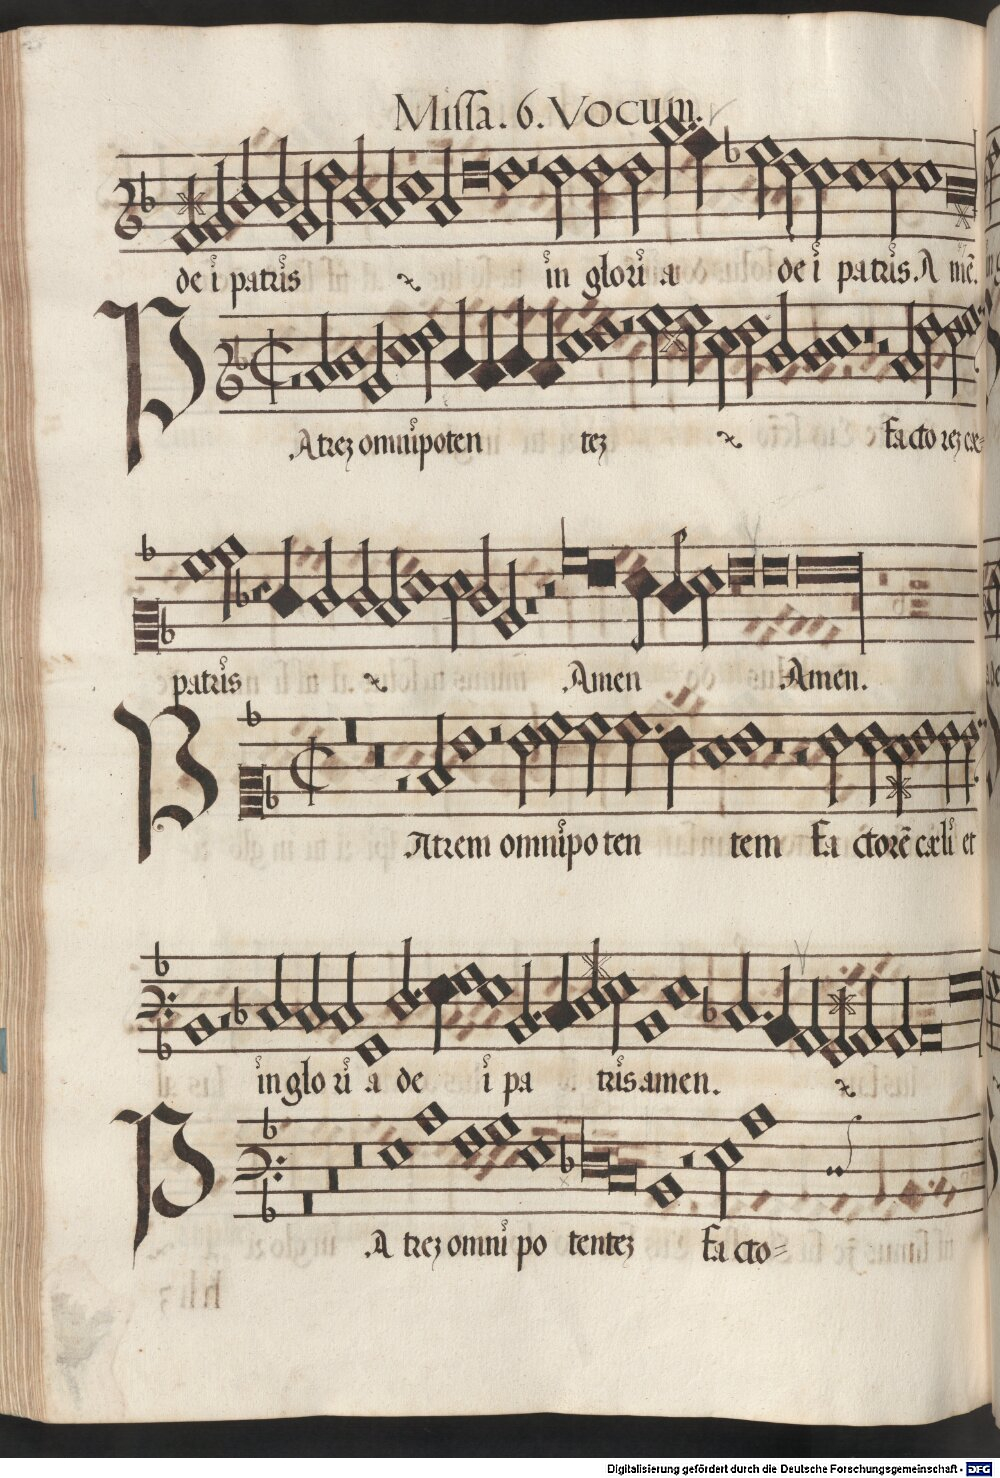 Missa. 6. Vocum.
de i patris in gloria de i patris. A mē.
P Atrez omnipoten tez Factorez cæ=
patris Amen Amen.
P Atrem omnipoten tem Fa ctorē cæli et
in glo ri a de i pa tris amen.
P A trez omni po tentez Fa cto=
Digitalisierung gefördert durch die Deutsche Forschungsgemeinschaft - DFG